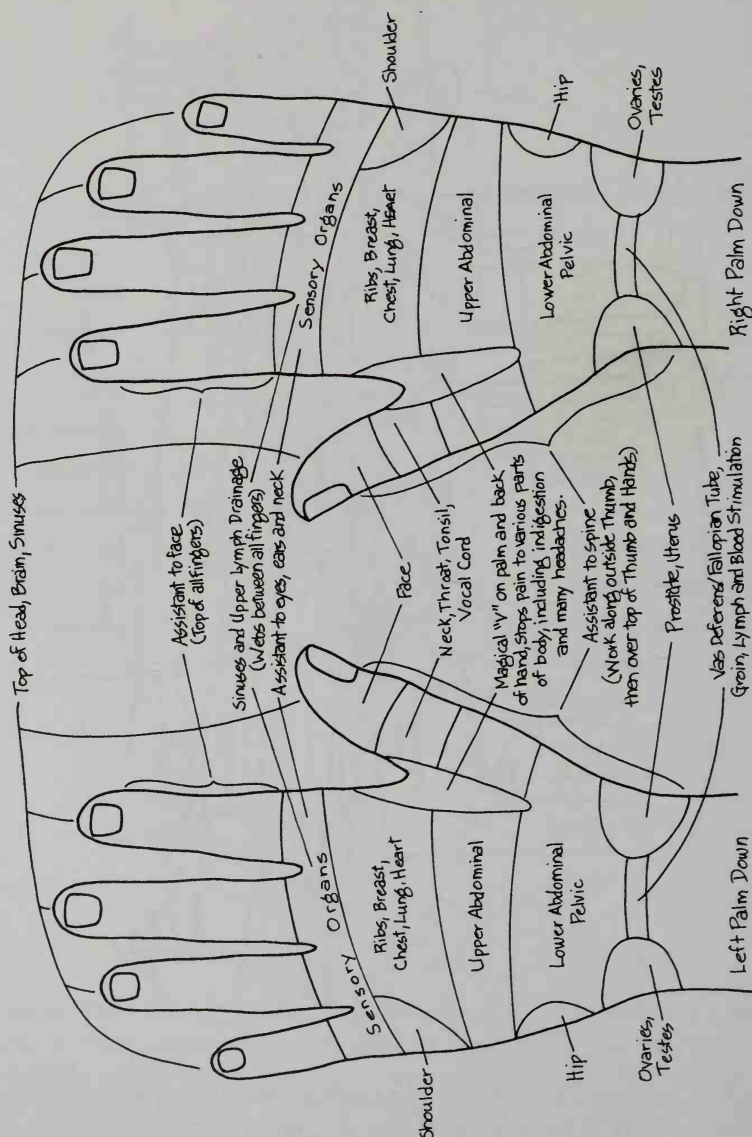 Top of Head, Brain, Sinuses
Assistant to face
(Top of all Fingers)
Sinuses and Upper Lymph Drainage
(Webs between all fingers)
Assistant to eyes, ears and neck
Face
Neck, Throat, Tonsil,
Vocal Cord
Magical "V" on palm and back
of hand, stops pain to various parts
of body, including indigestion
and many headaches.
Assistant to spine
(Work along outside Thumb,
then over top of Thumb and Hands)
Prostate, Uterus
Vas Deferens/Fallopian Tube,
Groin, Lymph and Blood Stimulation
Sensory Organs
Shoulder
Ribs, Breast,
Chest, Lung, Heart
Upper Abdominal
Lower Abdominal
Pelvic
Hip
Ovaries,
Testes
Left Palm Down
Sensory Organs
Shoulder
Ribs, Breast,
Chest, Lung, Heart
Upper Abdominal
Lower Abdominal
Pelvic
Hip
Ovaries,
Testes
Right Palm Down